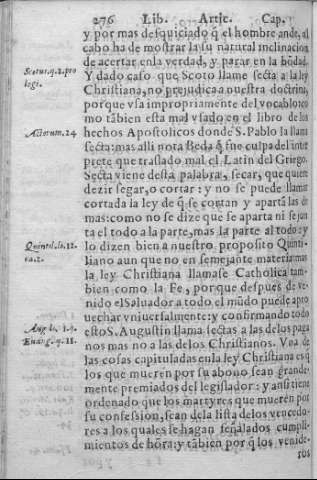 276 Lib. Artic. Cap.
y por mas desquiciado q̃ el hombre ande, al
cabo ha de mostrar la su natural inclinacion
de acertar en la verdad, y parar en la bõdad.
Scotus. q. 2. pro
logi.
Y dado caso que Scoto llame secta a la ley
Christiana, no prejudica a nuestra doctrina,
porque vsa impropriamente del vocablo: co
mo tãbien esta mal vsado en el libro de los
Actorum. 24
hechos Apostolicos donde S. Pablo la llama
secta: mas alli nota Beda q̃ fue culpa del inter
prete que traslado mal el Latin del Griego.
Secta viene desta palabra, secar, que quiere
dezir segar, o cortar: y no se puede llamar
cortada la ley de q̃ se cortan y apartã las de
mas: como no se dize que se aparta ni se jun
ta el todo a la parte, mas la parte al todo: y
Quintil. li. 12.
ca. 2.
lo dizen bien a nuestro proposito Quinti-
liano aun que no en semejante materia: mas
la ley Christiana llamase Catholica tam-
bien como la Fe, porque despues de ve-
nido el Saluador a todo el mũdo puede apro
uechar vniuersalmente: y confirmando todo
Aug. li. 1. q.
Euãg. q. 11.
esto S. Augustin llama sectas a las delos paga
nos mas no a las delos Christianos. Vna de
las cosas capituladas en la ley Christiana es q̃
los que mueren por su abono sean grande-
mente premiados del legislador: y ansi tiene
ordenado que los martyres que mueren por
su confession, sean dela lista delos vencedo-
res a los quales se hagan señalados cumpli-
mientos de hõra: y tãbien por q̃ los venide-
ros